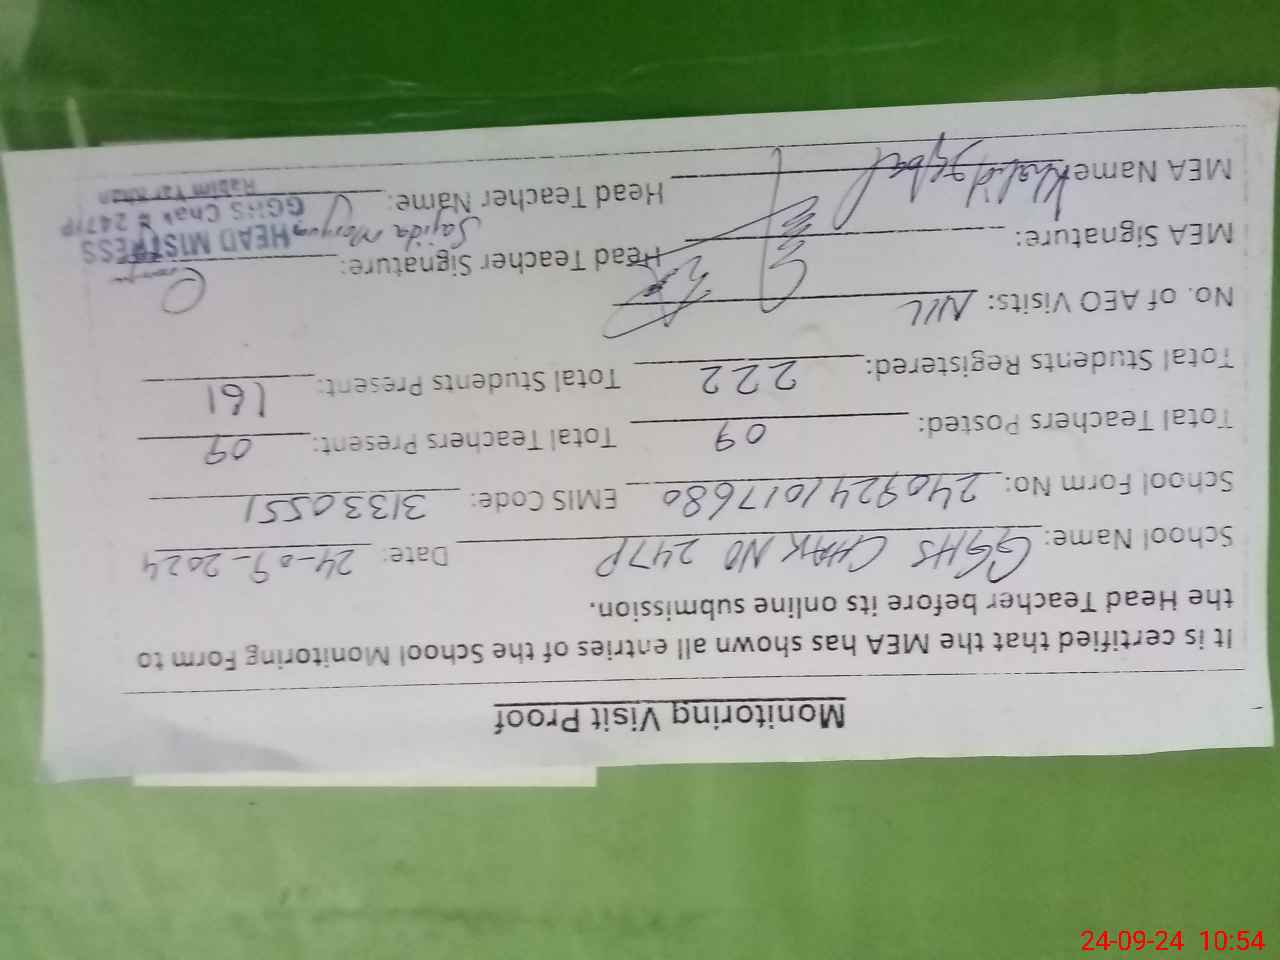 Monitoring Visit Proof
It is certified that the MEA has shown all entries of the School Monitoring Form to
the Head Teacher before its online submission.
School Name: GGHS CHAK NO 247P Date: 24-09-2024
School Form No: 240924101 7680 EMIS Code: 31330551
Total Teachers Posted: 09 Total Teachers Present: 09
Total Students Registered: 222 Total Students Present: 161
No. of AEO Visits: NIL
MEA Signature: Head Teacher Signature:
MEA Name Khalid Iqbal Head Teacher Name: Sajida Maryum
HEAD MISTRESS
GGHS Chak # 247/P
Rahim Yar Khan
24-09-24 10:54